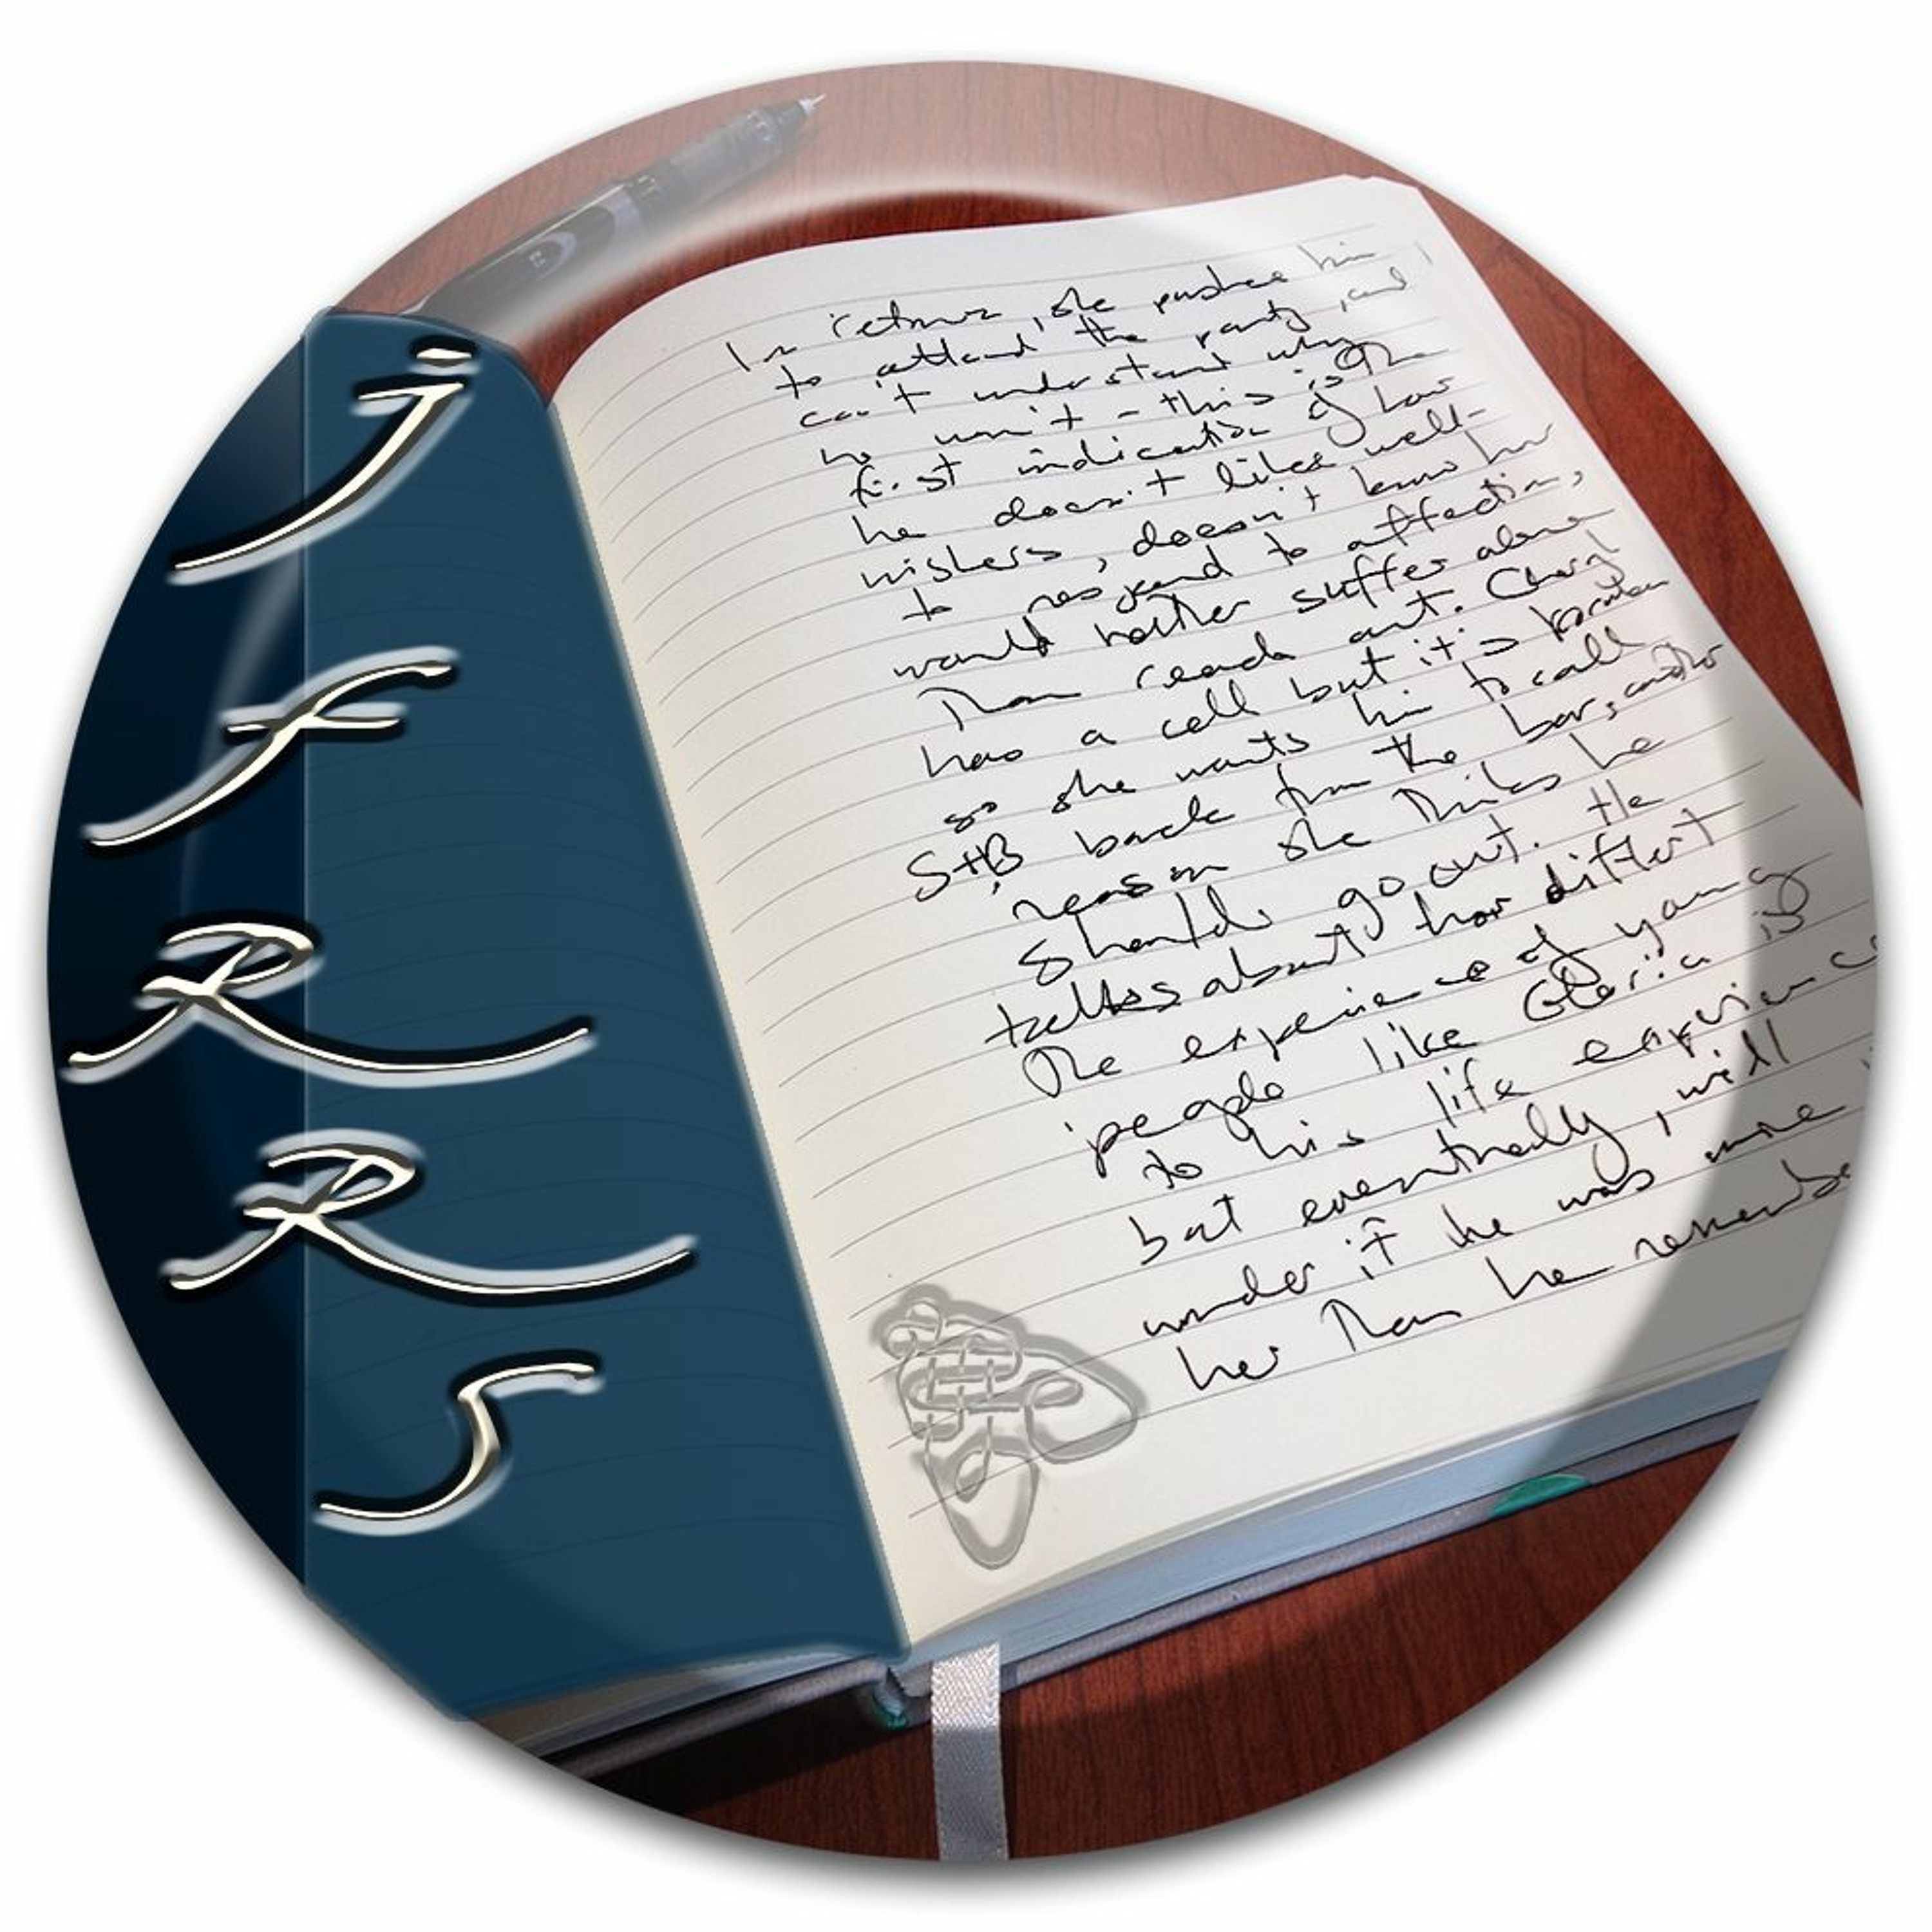 J
F
R
R
S
In return, she pushes him
to attend the party, and
can't understand why
he won't - this is the
first indication of how
he doesn't like well-
wishers, doesn't know how
to respond to affection,
would rather suffer alone
than reach out. Cheryl
has a cell but it's broken
so she wants him to call
S+B back from the bar, another
reason she thinks he
should go out. He
talks about how diffent
the experience of young
people like Gloria is
to his life experience
but eventually, will
wonder if he was more
her than he